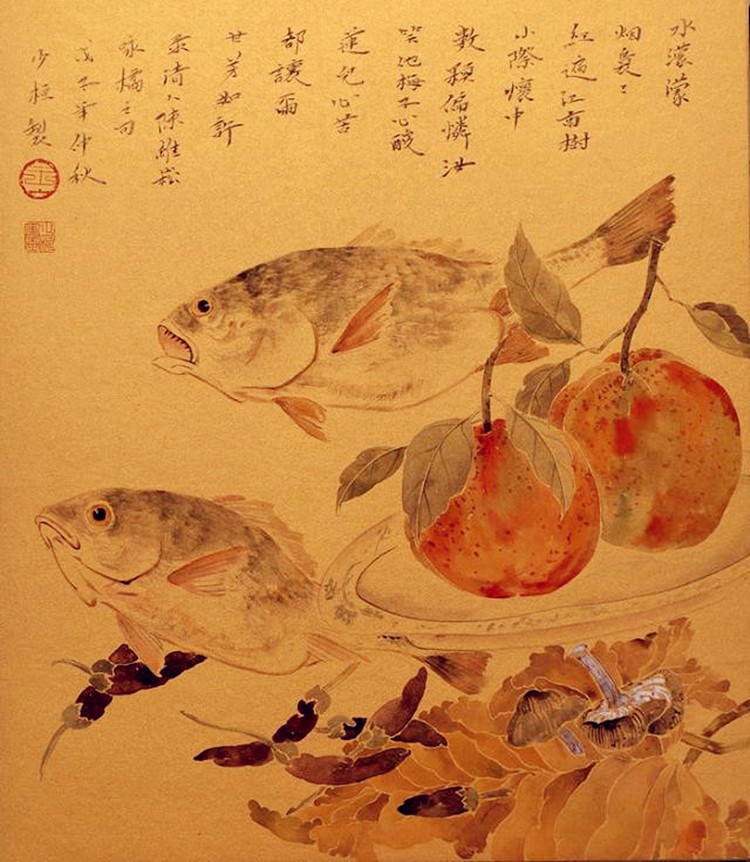 水濛濛
烟裊〻
紅遍江南樹
小際懷中
數顆偏憐汝
笑他梅子心酸
蓮兒心苦
都讓爾
甘芳如許
录清人陳維崧
咏橘之句
戊子年仲秋
少桓製